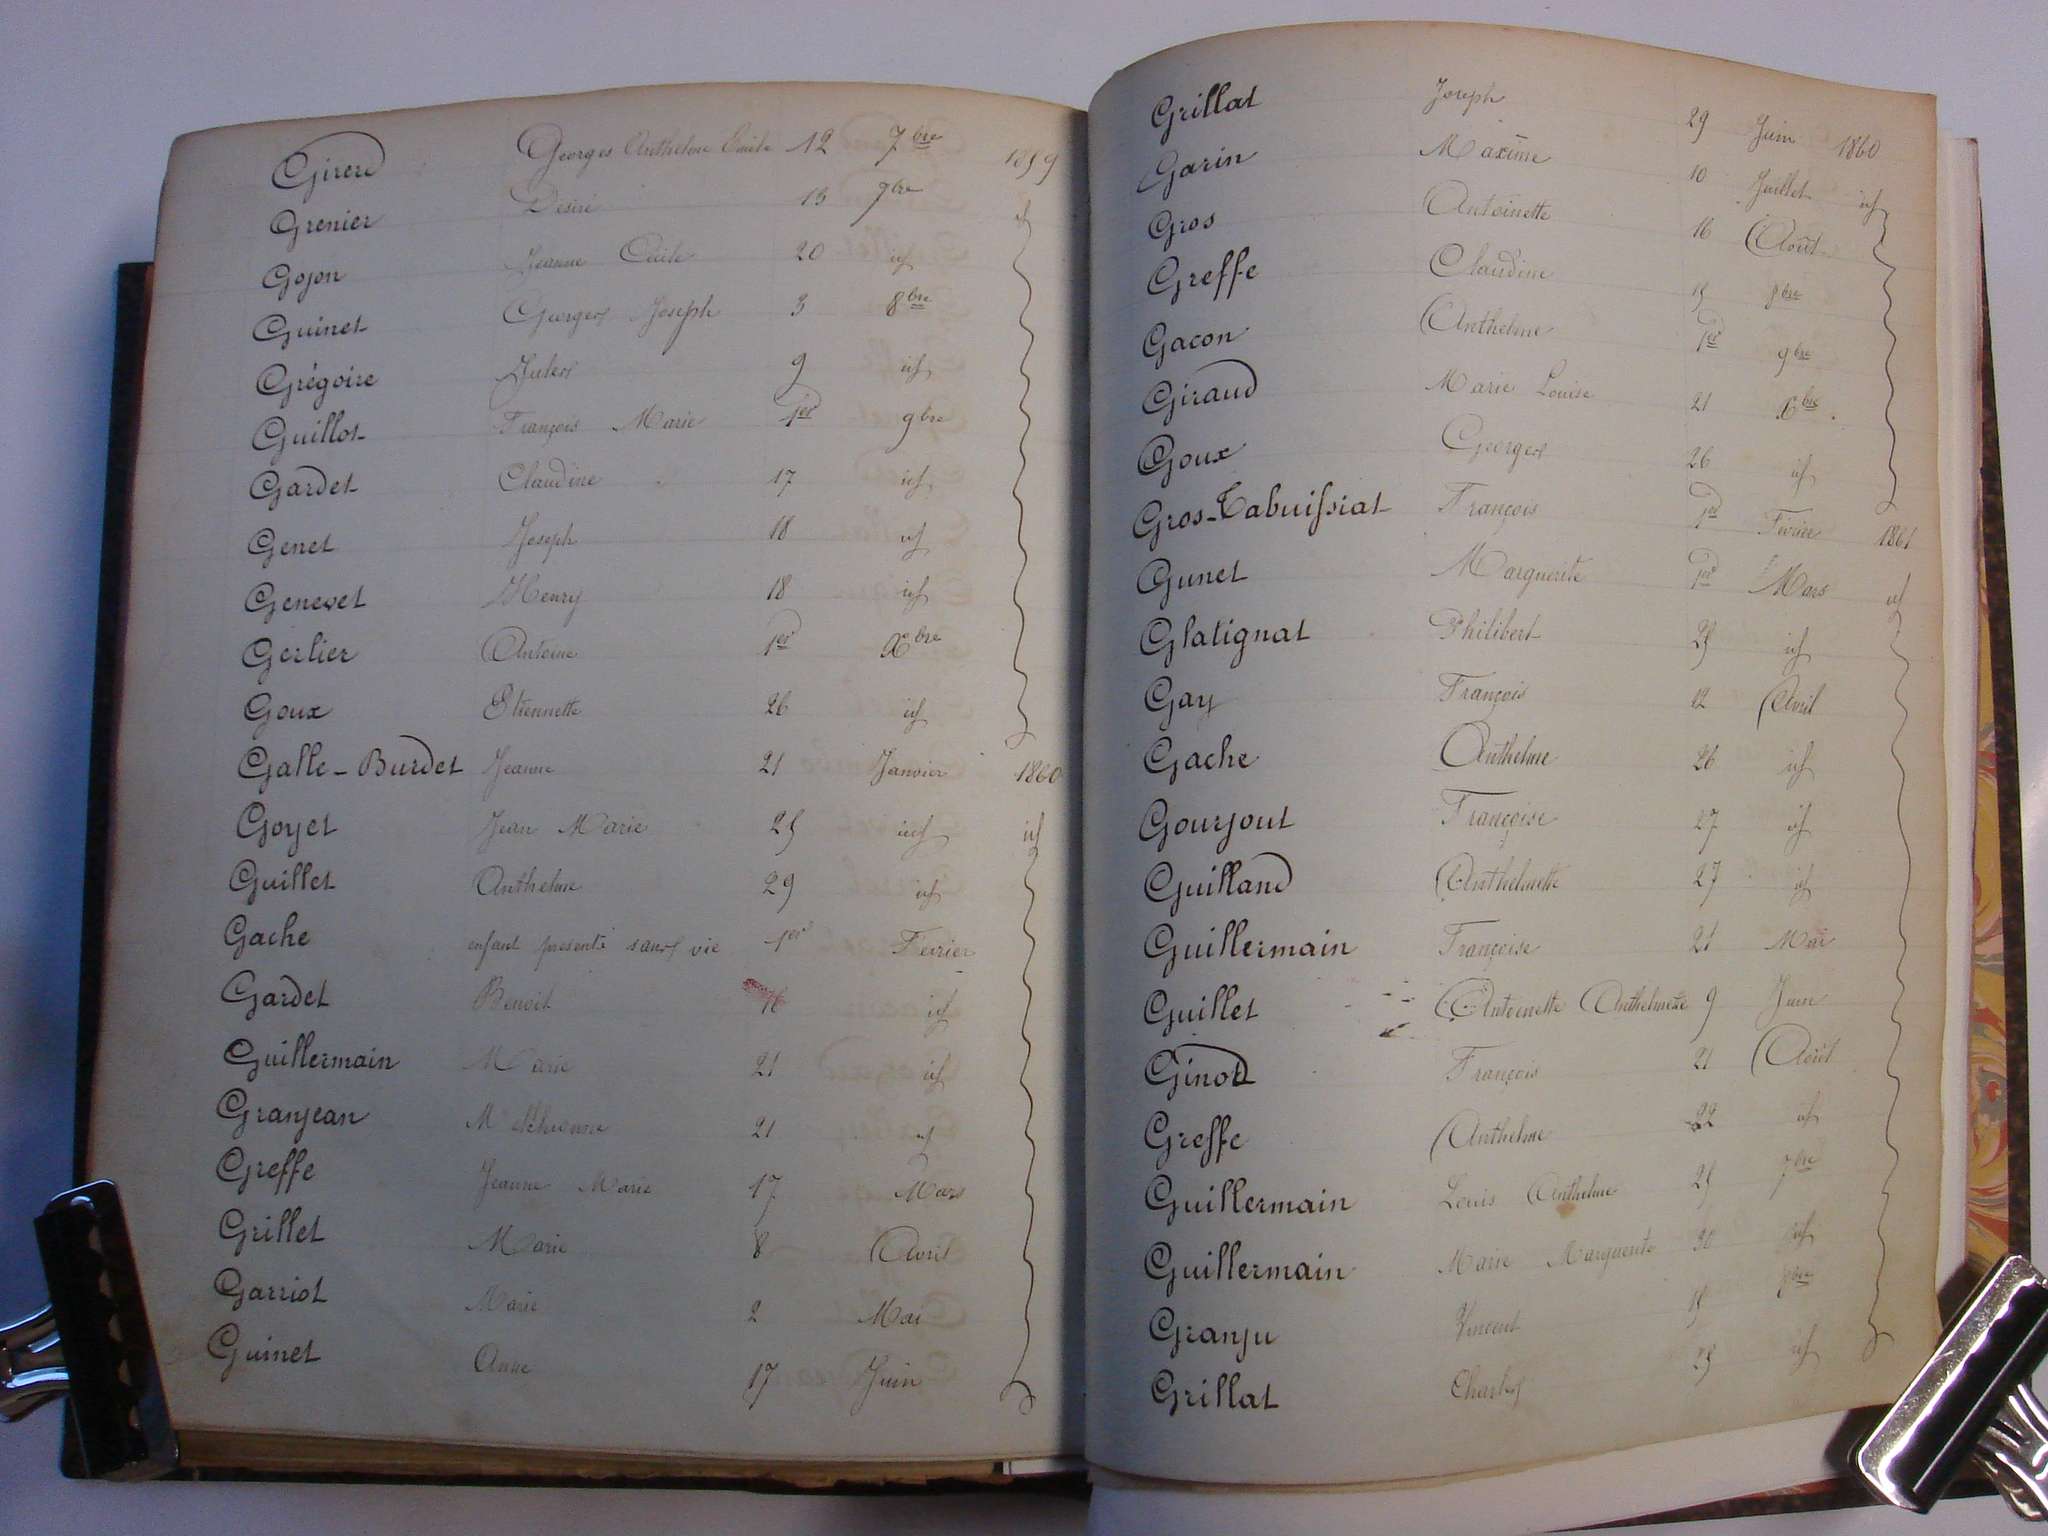 Girerd Georges Anthelme Emile 12 7bre 1859
Grenier Désiré 15 7bre id
Gojon Jeanne Cécile 20 id
Guinet Georges Joseph 3 8bre
Grégoire Jules 9 id
Guillot François Marie 1er 9bre
Gardet Claudine 17 id
Genet Joseph 18 id
Genevet Henry 18 id
Gerlier Antoine 1er Xbre
Goux Etiennette 26 id
Galle-Burdet Jeanne 21 Janvier 1860
Goyet Jean Marie 25 id id
Guillet Anthelme 29 id
Gache enfant présenté sans vie 1er Février
Gardet Benoit 16 id
Guillermain Marie 21 id
Granjean M 21 id
Greffe Jeanne Marie 17 Mars
Grillet Marie 8 Avril
Garriot Marie 2 Mai
Guinet Anne 17 Juin
Grillat Joseph 29 Juin 1860
Garin Maxime 10 Juillet id
Gros Antoinette 16 Août
Greffe Claudine 15 8bre
Gacon Anthelme 1er 9bre
Giraud Marie Louise 21 Xbre
Goux Georges 26 id
Gros-Tabuissiat François 1er Février 1861
Gunet Marguerite 1er Mars id
Glatignat Philibert 25 id
Gay François 12 Avril
Gache Anthelme 26 id
Gourjout Françoise 27 id
Guilland Anthelmette 27 id
Guillermain Françoise 21 Mai
Guillet Antoinette Anthelmette 9 Juin
Ginod François 21 Août
Greffe Anthelme 22 id
Guillermain Louis Anthelme 25 7bre
Guillermain Marie Marguerite 30 id
Granju Vincent 15 8bre
Grillat Charles 25 id